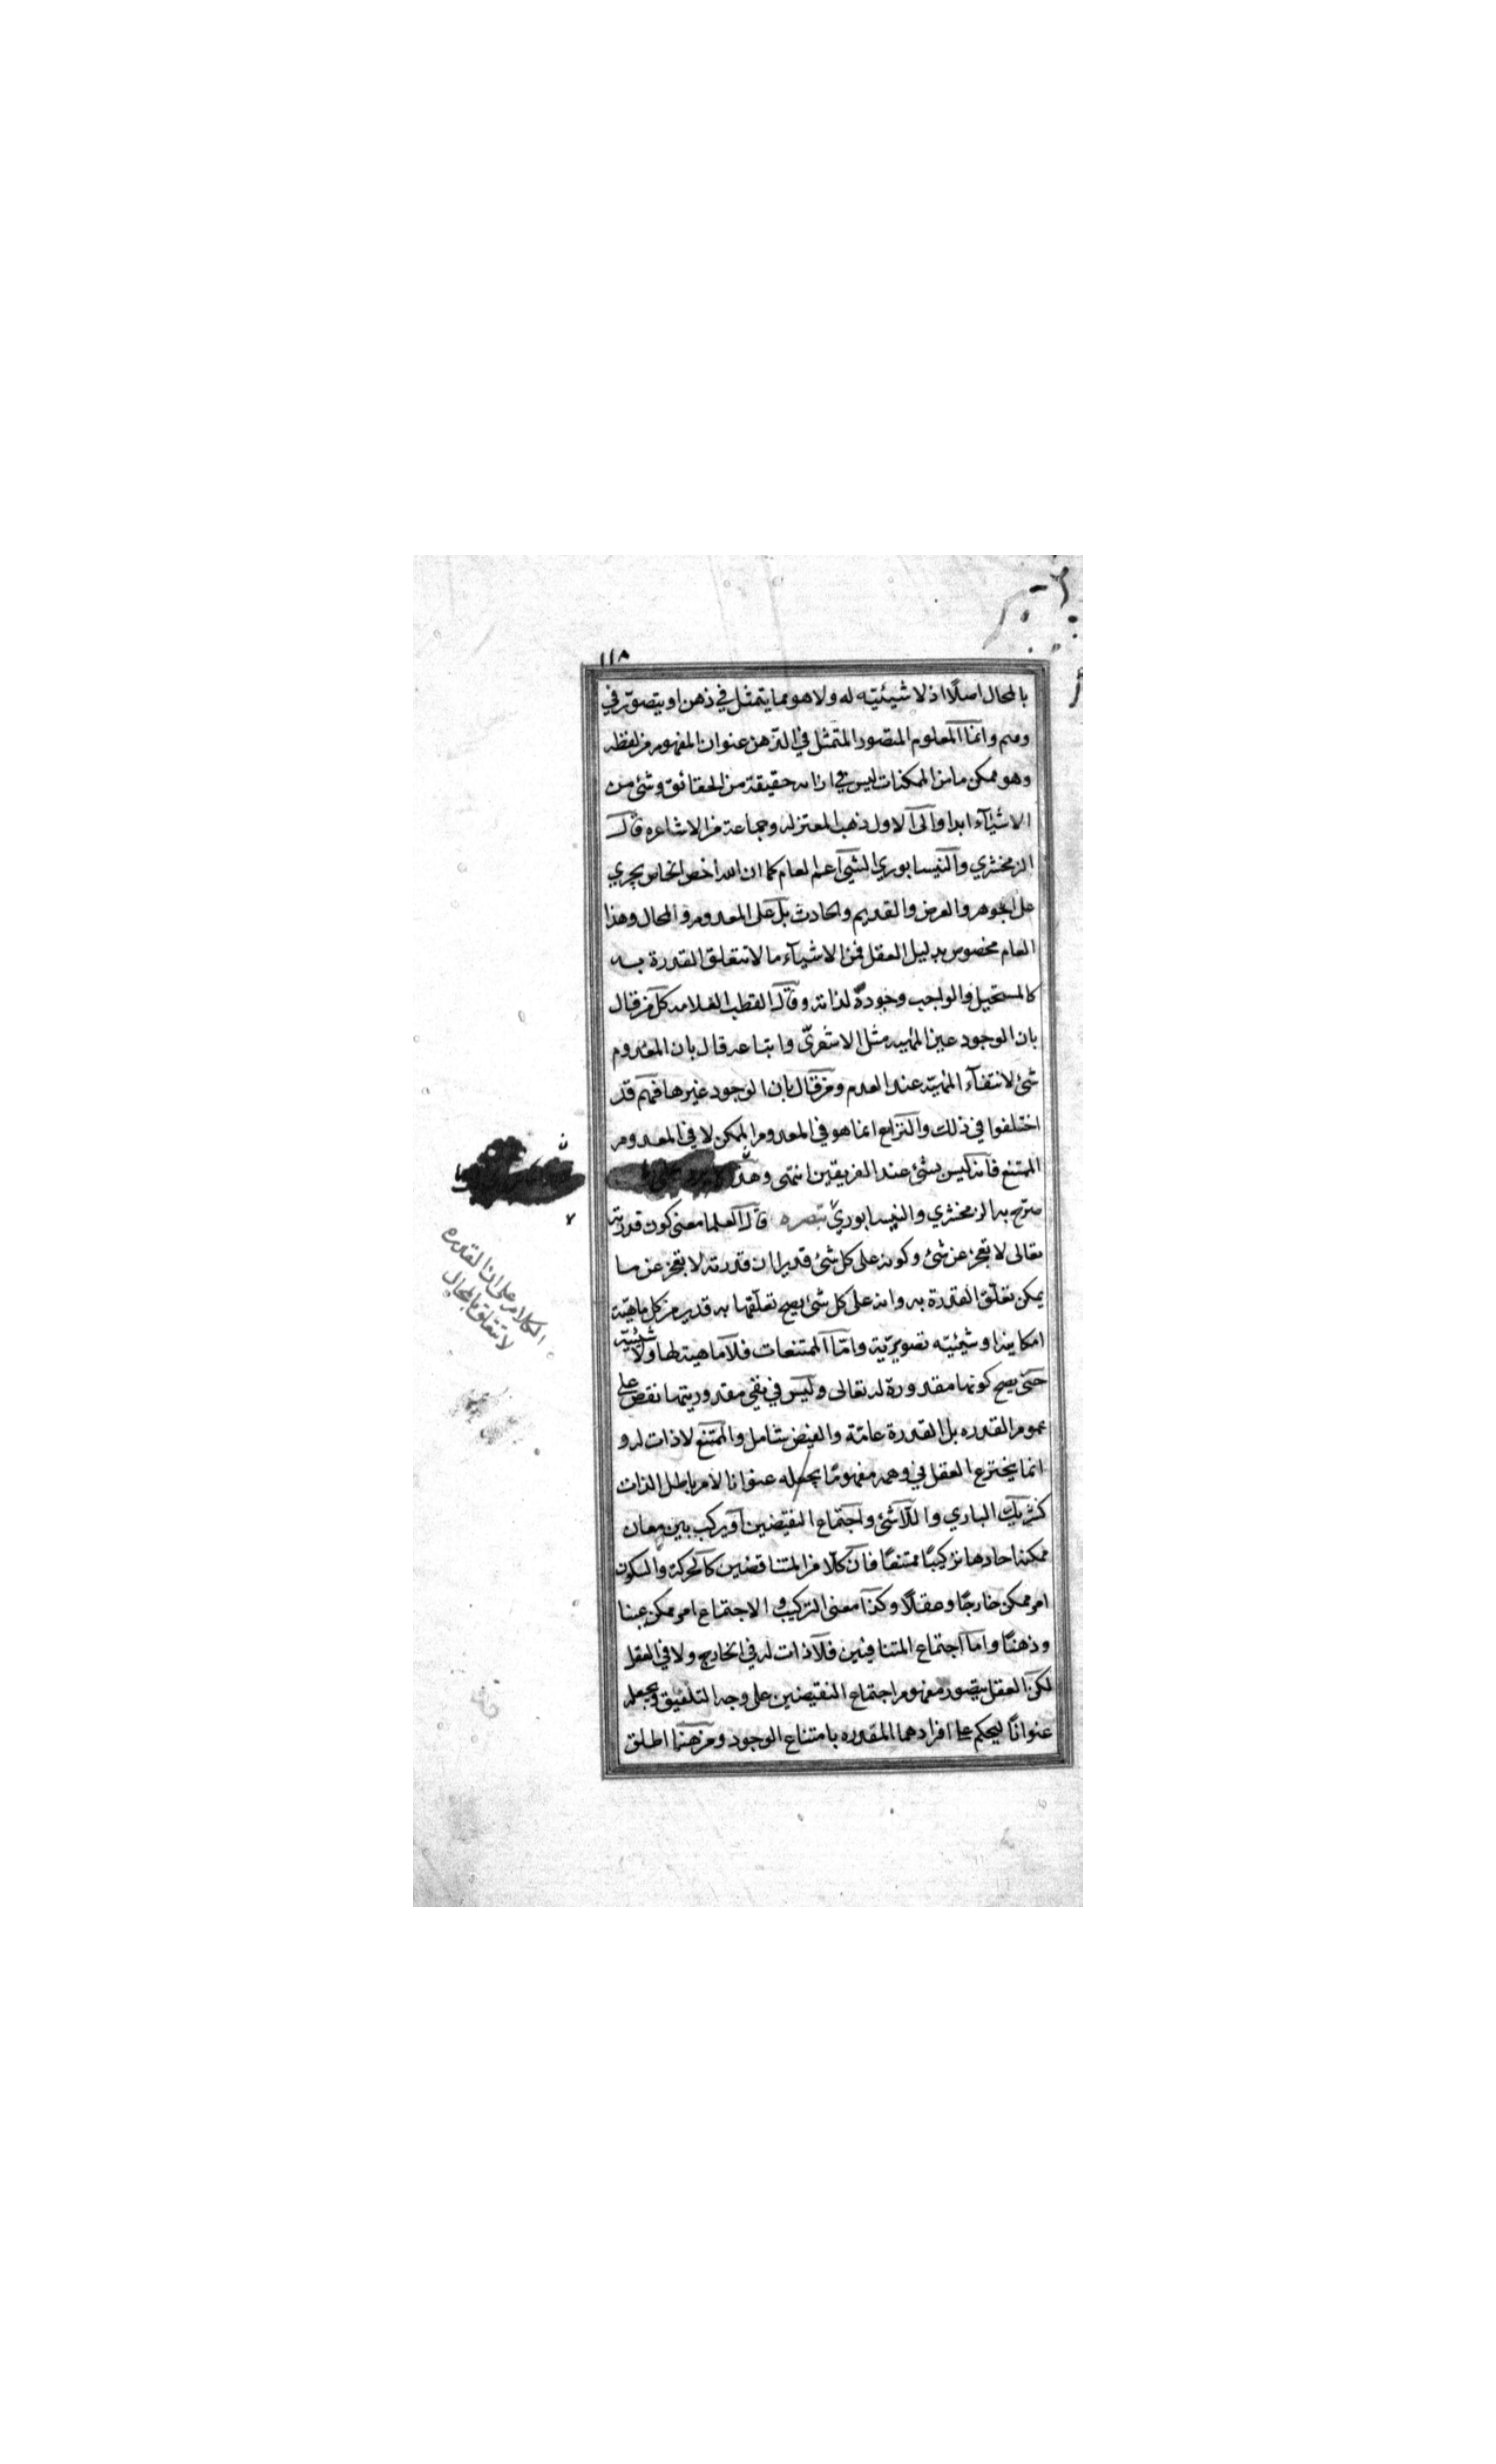 ١١٨
بالمحال اصلًا اذ لا شيئيّه له ولا هو مما يتمثل في ذهن او يتصوّر في
وهم وانما المعلوم المتصور المتمثل في الذهن عنوان المفهوم من لفظه
وهو ممكن ما من الممكنات ليس في ازائه حقيقة من الحقائق وشئ من
الاشيآء ابدا والى الاول ذهب المعتزله وجماعة من الاشاعره قال
الزمخشري والنيسابوري الشيئ اعم العام كما ان الله اخص الخاص يجري
على الجوهر والعرض والقديم والحادث بل على المعدوم والمحال وهذا
العام مخصوص بدليل العقل فمن الاشيآء ما لا تتعلق القدرة به
كالمستحيل والواجب وجوده لذاته وقال القطب العلامه كل من قال
بان الوجود عين المهيه مثل الاشعريّ واتباعه قال بان المعدوم
شئ لانتفآء المهيّة عند العدم ومن قال بان الوجود غيرها فهم قد
اختلفوا في ذلك والنزاع انما هو في المعدوم الممكن لا في المعدوم
الممتنع فانه ليس بشئ عند الفريقين انتهى وهذا
صرّح به الزمخشري والنيسابوريّ تبصره قال العلما معنى كون قدرته
تعالى لا تعجز عن شئ وكونه على كل شئ قديرا ان قدرته لا تعجز عن ما
يمكن تعلّق القدرة به وانه على كل شئ يصح تعلّقها به قدير من كل ماهيّة
امكانيه او شيئيّه تصويريّة وامّا الممتنعات فلا ماهية لها ولا شيئيّة
حتى يصح كونها مقدورة له تعالى وليس في نفي مقدوريتها نقص على
عموم القدره بل القدرة عامّة والفيض شامل والممتنع لا ذات له و
انما يخترع العقل في وهمه مفهومًا يجعله عنوانا لامر باطل الذات
كشريك الباري واللاشئ واجتماع النقيضين او يركب بين معان
ممكنه احادها تركيبًا ممتنعًا فان كلا من المتناقضين كالحركة والسكون
امر ممكن خارجًا وعقلًا وكذا معنى التركيب و الاجتماع امر ممكن عينا
وذهنًا واما اجتماع المتنافيين فلا ذات له في الخارج ولا في العقل
لكن العقل يتصور مفهوم اجتماع النقيضين على وجه التلفيق ويجعله
عنوانًا ليحكم على افرادهما المقدره بامتناع الوجود ومن هنا اطلق
الكلام على ان القدره
لا تتعلق بالمحال